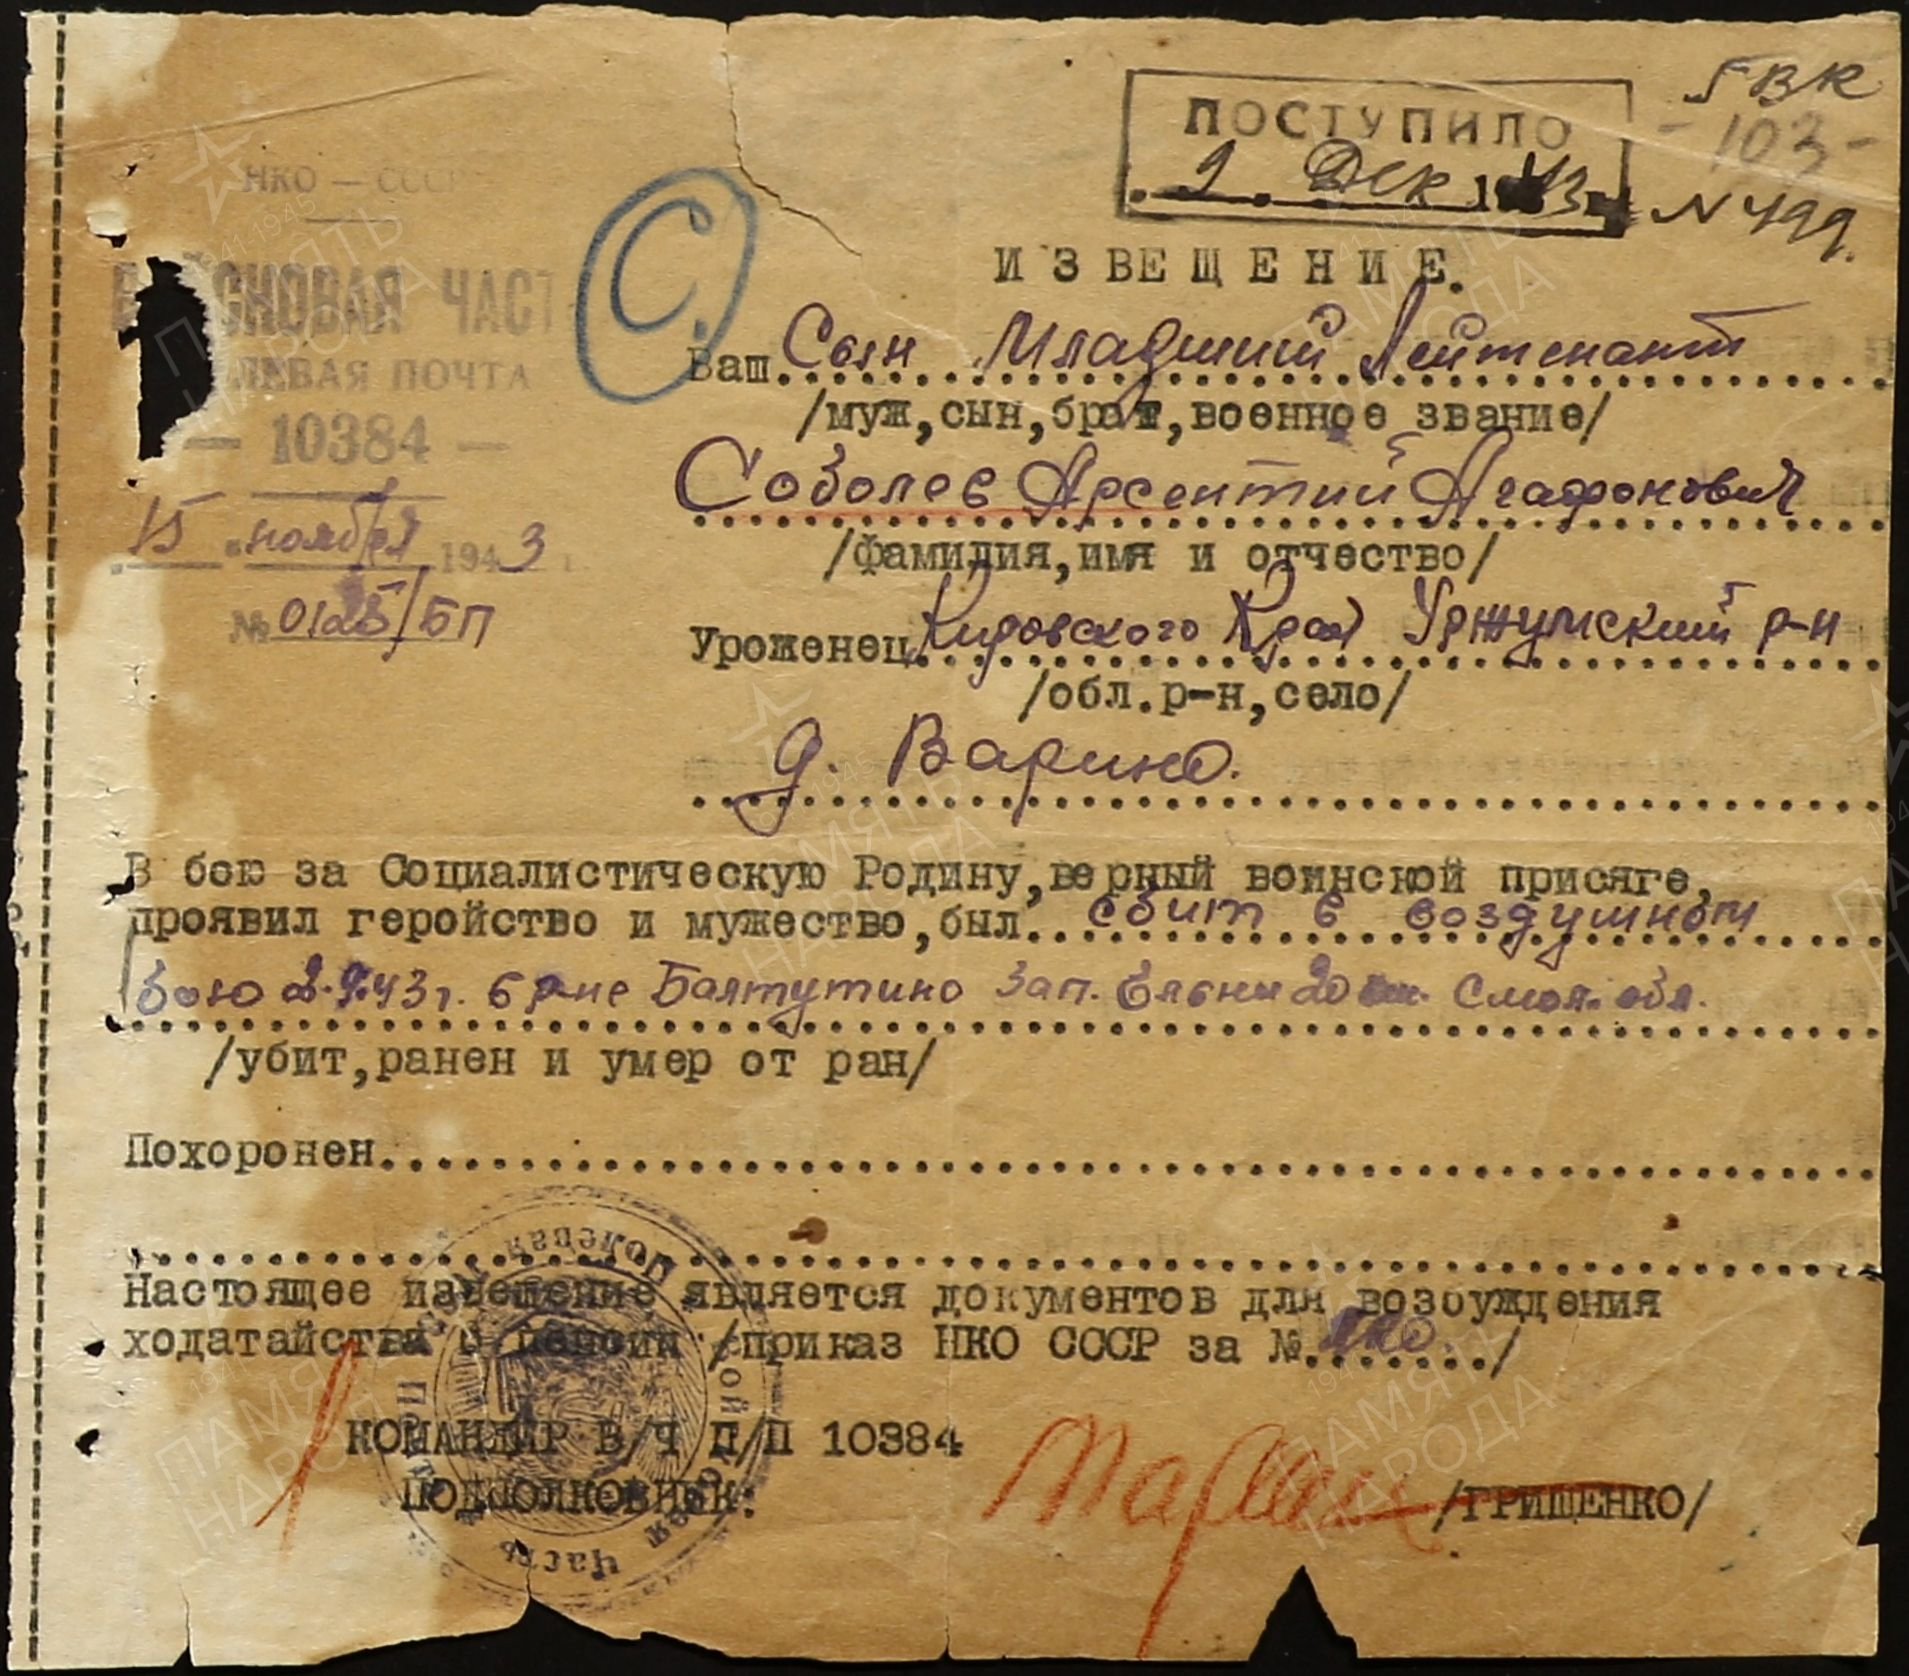 ГВК
- 103 -
ПОСТУПИЛО
2. Дек 1943 г. N 499.
НКО — СССР
ВОЙСКОВАЯ ЧАСТЬ
ПОЛЕВАЯ ПОЧТА
— 10384 —
15 ноября 1943 г.
№ 0125/БП
С.
ИЗВЕЩЕНИЕ.
Ваш Сын Младший Лейтенант
/муж,сын,брат,военное звание/
Соболев Арсентий Агафонович
/фамилия,имя и отчество/
Уроженец Кировского Края Уржумский р-н
/обл.р-н,село/
д. Варино.
В бою за Социалистическую Родину,верный воинской присяге,
проявил геройство и мужество,был сбит в воздушном
бою 2.9.43г. в р-не Балтутино зап. Ельни 20 км. Смол. обл.
/убит,ранен и умер от ран/
Похоронен
Настоящее извещение является документов для возбуждения
ходатайства о пенсии /приказ НКО СССР за №......./
КОМАНДИР В/Ч П/П 10384
ПОДПОЛКОВНИК: /ГРИЩЕНКО/
Полевая
Часть
ПАМЯТЬ
НАРОДА
1941-1945